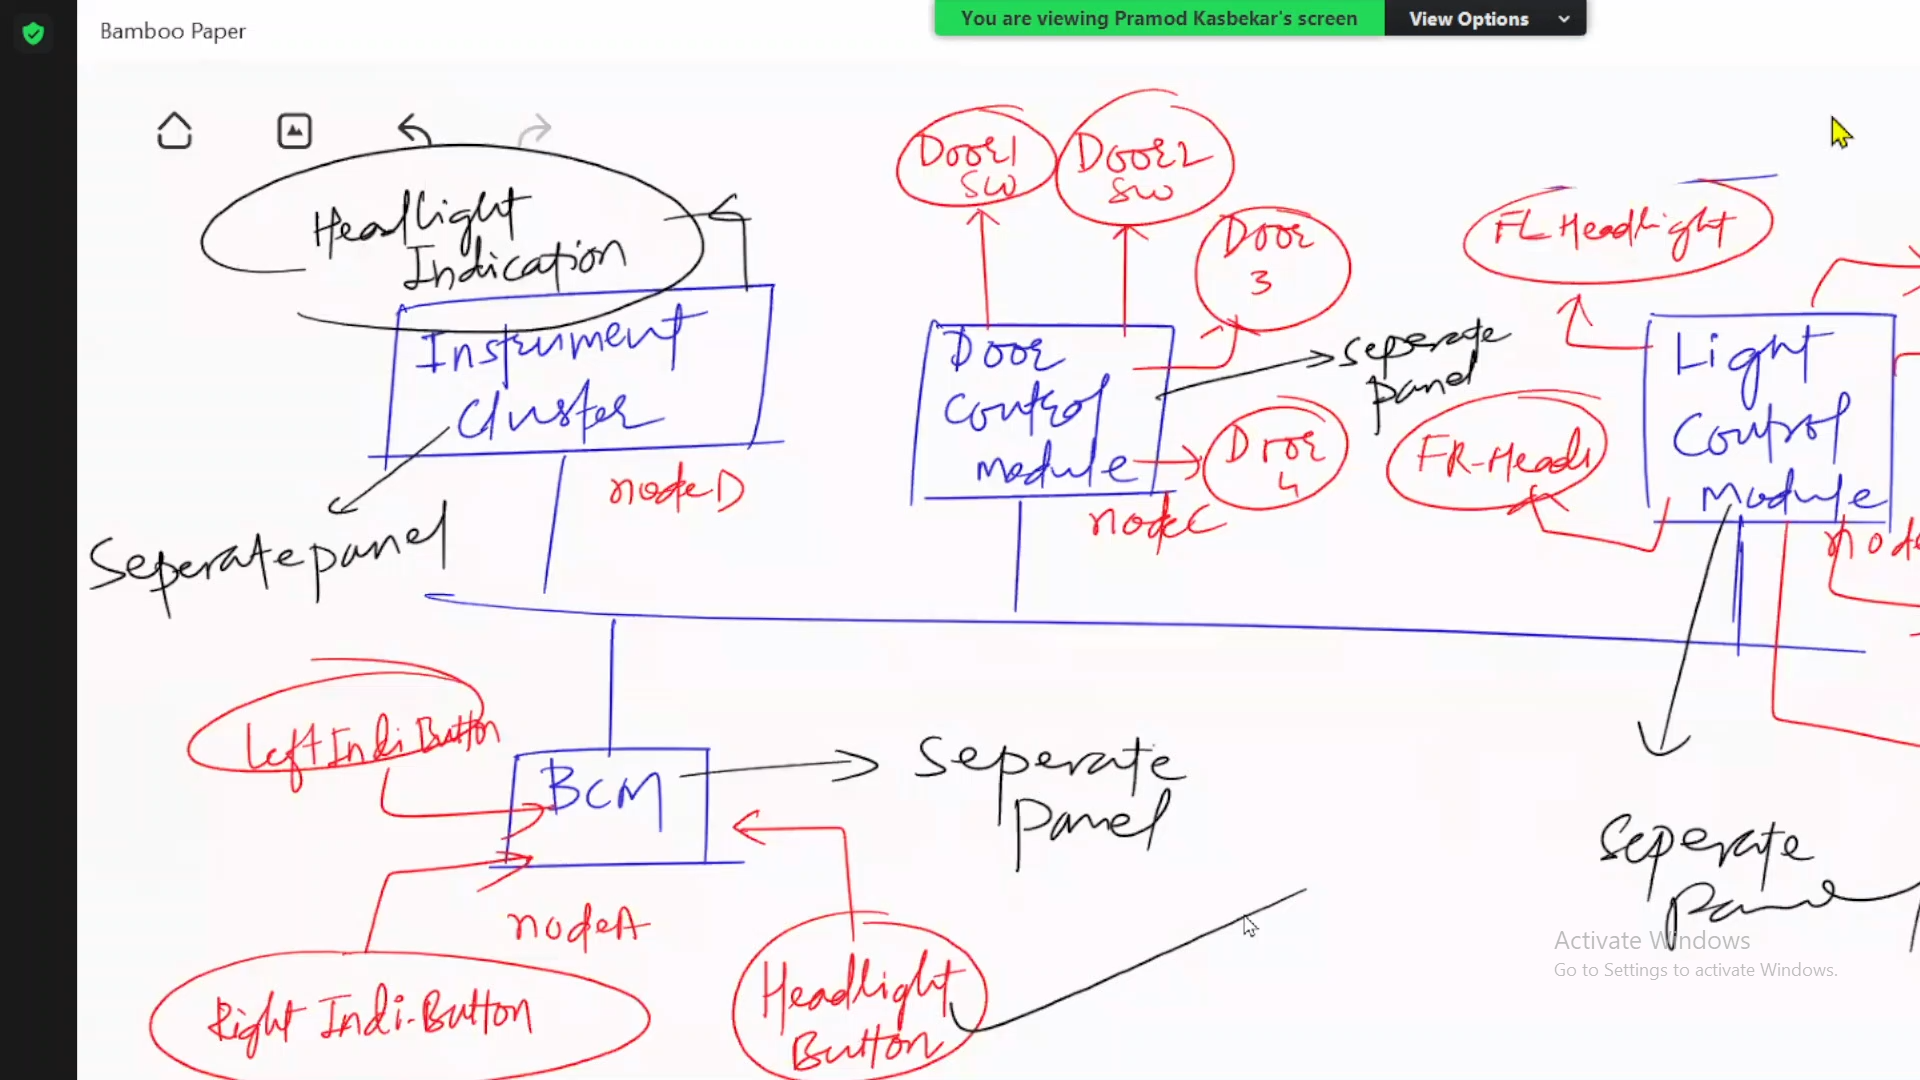 Bamboo Paper
You are viewing Pramod Kasbekar's screen
View Options
Headlight
Indication
Instrument
Cluster
nodeD
Seperate panel
Door1
SW
Door2
SW
Door
3
Door
Control
Module
seperate
panel
Door
4
nodeC
FL Headlight
FR-Headl
Light
Control
Module
node
Left Indi Button
BCM
Seperate
Panel
nodeA
Right Indi-Button
Headlight
Button
Seperate
Panel
Activate Windows
Go to Settings to activate Windows.